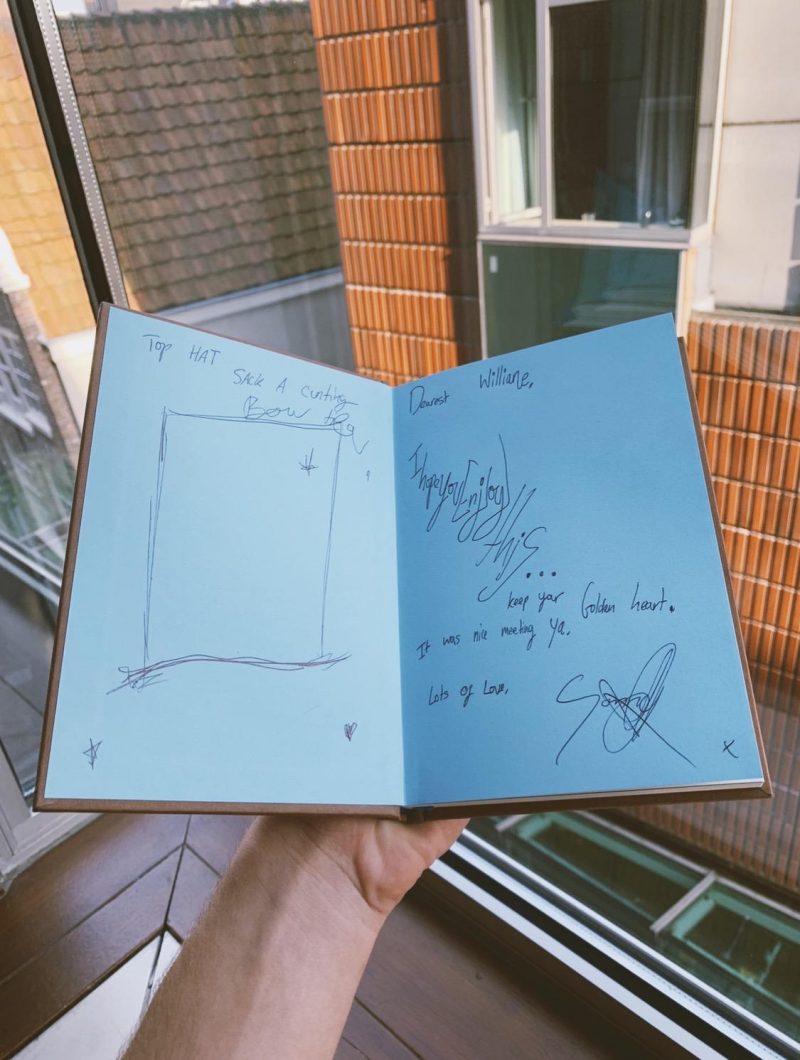 Top HAT
SACK A cunting
Bow
Dearest Williane,
I hope you Enjoy
this...
keep your Golden heart.
It was nice meeting ya.
Lots of Love,
x